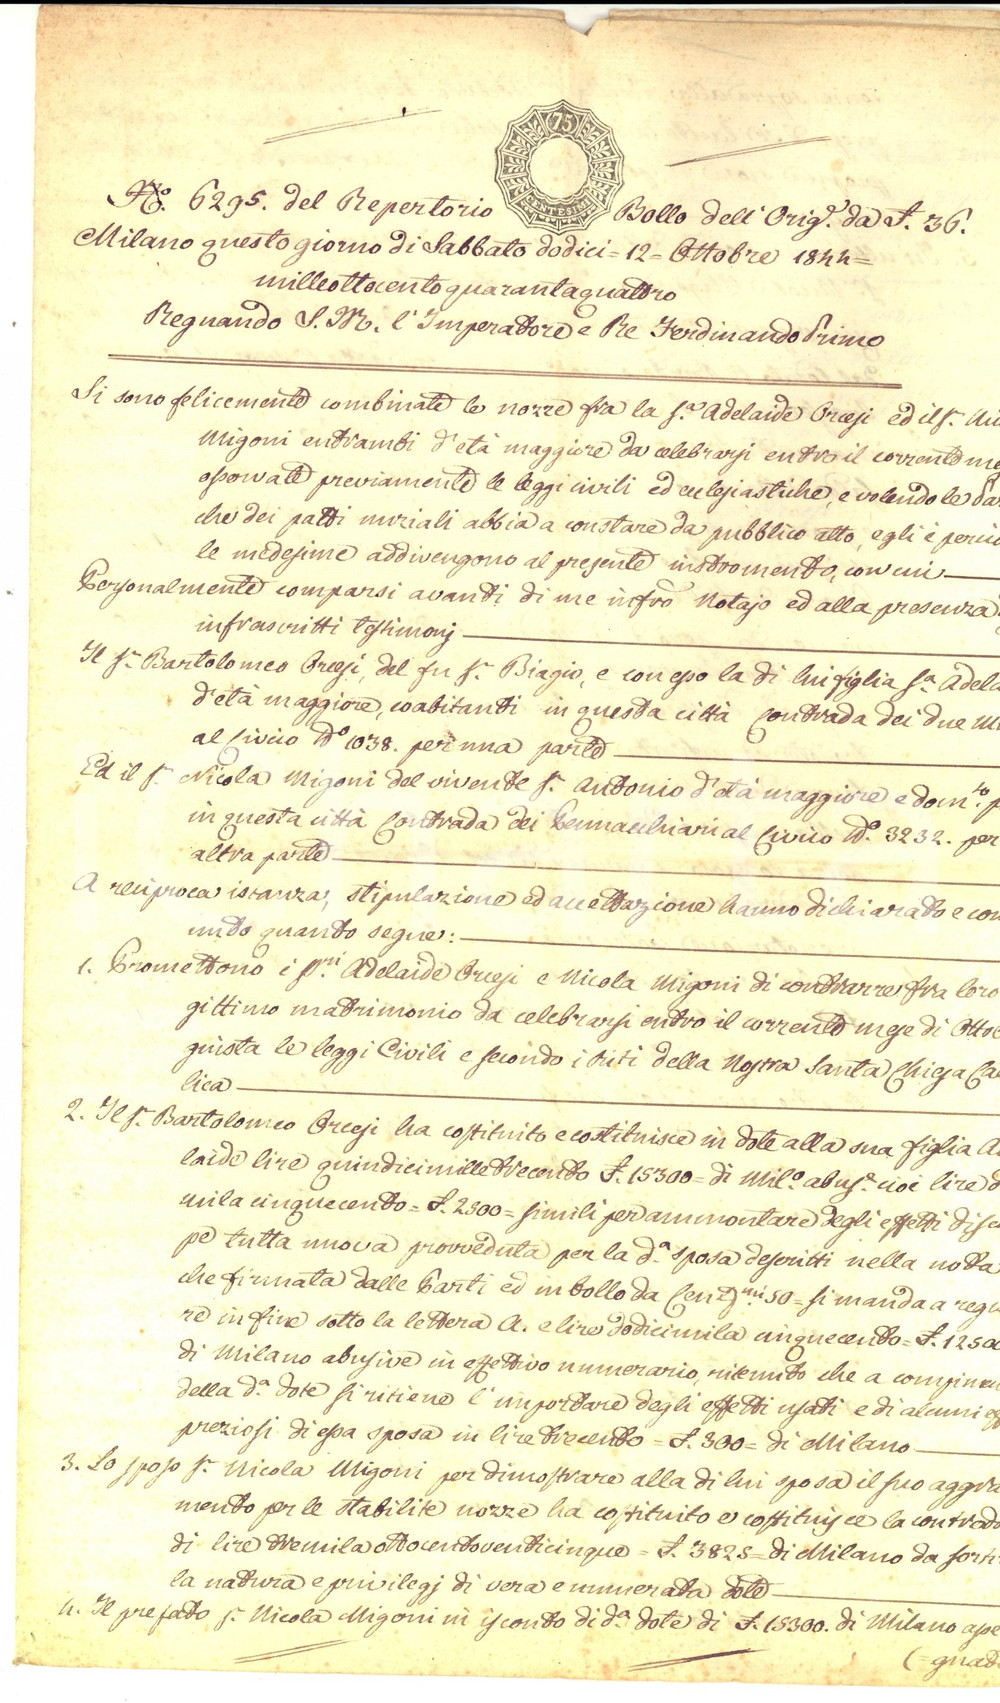 75
CENTESIMI
N.º 6295. del Repertorio Bollo dell' Orig.e da £. 36.
Milano questo giorno di Sabbato dodici = 12 = Ottobre 1844 =
milleottocentoquarantaquattro
Regnando S. M. l'Imperatore e Re Ferdinando Primo
Si sono felicemente combinate le nozze fra la S.ra Adelaide Orcesi ed il S.r
Migoni entrambi d'età maggiore da celebrarsi entro il corrente me
osservate previamente le leggi civili ed ecclesiastiche, e volendo le Par
che dei patti nuziali abbia a constare da pubblico atto, egli è perciò
le medesime addivengono al presente instromento, con cui
Personalmente comparsi avanti di me infro Notajo ed alla presenza
infrascritti testimonj
Il S.r Bartolomeo Orcesi, del fu S.r Biagio, e con esso la di lui figlia S.a Adela
d'età maggiore, coabitanti in questa città Contrada dei due M
al Civico N.º 1038. per una parte
Ed il S.r Nicola Migoni del vivente S.r Antonio d'età maggiore e dom.to p
in questa città Contrada dei Pennacchiari al Civico N.º 3232. per
altra parte
A reciproca istanza, stipulazione ed accettazione hanno dichiarato e con
nuto quanto segue:
1. Promettono i S.ri Adelaide Orcesi e Nicola Migoni di contrarre fra loro
gittimo matrimonio da celebrarsi entro il corrente mese di Otto
giusta le leggi Civili e secondo i riti della Nostra Santa Chiesa Ca
lica
2. Il S.r Bartolomeo Orcesi ha costituito e costituisce in dote alla sua figlia A
laide lire quindicimilletrecento £. 15300 = di Mil.o abus.e cioè lire d
mila cinquecento = £. 2500 = simili per ammontare degli effetti di sca
pe tutta nuova provveduta per la d.a sposa descritti nella nota
che firmata dalle Parti ed in bollo da Cent.mi 50 = si manda a regis
re in fine sotto la lettera A. e lire dodicimila cinquecento = £. 1250
di Milano abusive in effettivo numerario, ritenuto che a compimen
della d.a dote si ritiene l'importare degli effetti usati e di alcuni
preziosi di essa sposa in lire trecento = £. 300 = di Milano
3. Lo sposo S.r Nicola Migoni per dimostrare alla di lui sposa il suo aggra
mento per le stabilite nozze ha costituito e costituisce la contrado
di lire tremila ottocentoventicinque = £. 3825 = di Milano da sorti
la natura e privilegj di vera e numerata dote
4. Il prefato S.r Nicola Migoni in isconto di d.a dote di £. 15300. di Milano asse
(= guada